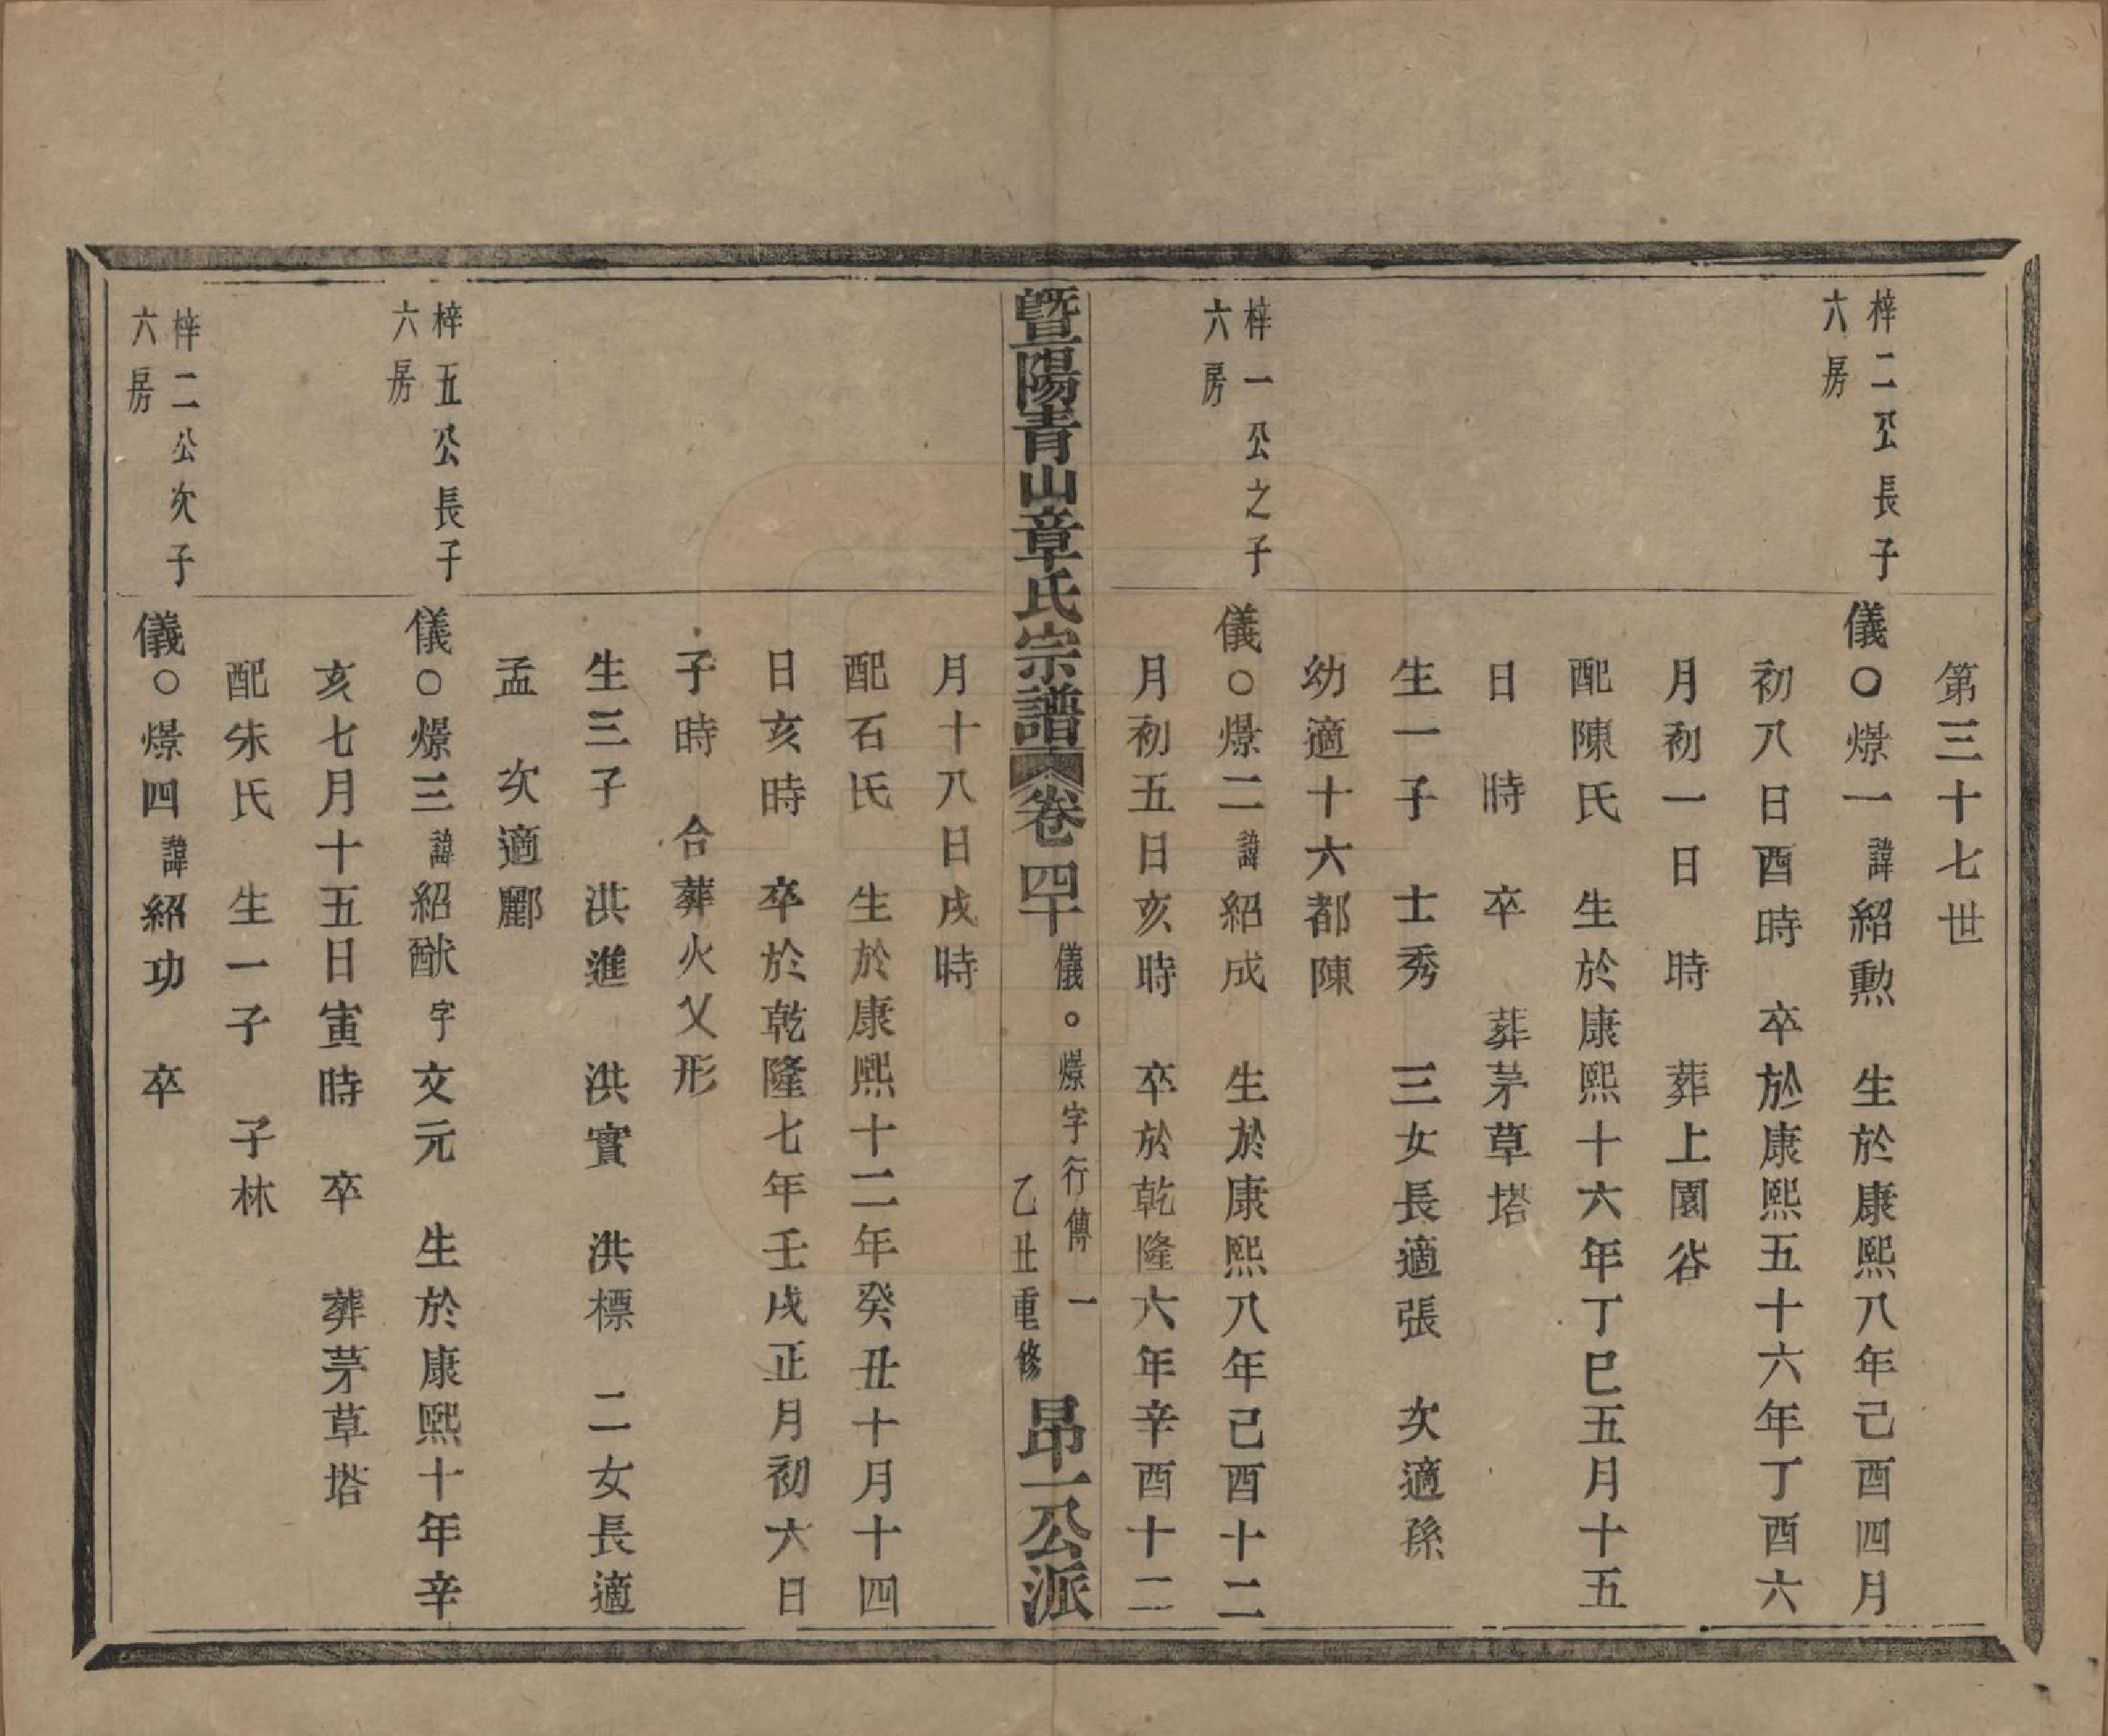 第三十七世
梓二公長子
六房
儀〇燝一諱紹勲　生於康熙八年己酉四月
初八日酉時　卒於康熙五十六年丁酉六
月初一日　時　葬上園谷
配陳氏　生於康熙十六年丁巳五月十五
日　時　卒　葬茅草塔
生一子　士秀　三女長適張　次適孫
幼適十六都陳
梓一公之子
六房
儀〇燝二諱紹成　生於康熙八年己酉十二
月初五日亥時　卒於乾隆六年辛酉十二
暨陽青山章氏宗譜　卷四十　儀〇燝字行傳　一　乙丑重修　昂一公派
月十八日戌時
配石氏　生於康熙十二年癸丑十月十四
日亥時　卒於乾隆七年壬戌正月初六日
子時　合葬火乂形
生三子　洪進　洪實　洪標　二女長適
孟　次適酈
梓五公長子
六房
儀〇燝三諱紹猷字文元　生於康熙十年辛
亥七月十五日寅時　卒　葬茅草塔
配朱氏　生一子　子林
梓二公次子
六房
儀〇燝四諱紹功　卒